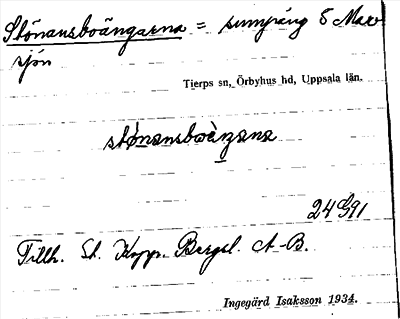 Stönansboängarna = sumpäng S Max-
sjön
Tierps sn, Örbyhus hd, Uppsala län.
stönansboàŋana
24 991
Tillh. St. Kopp. Bergsl. A-B.
Ingegärd Isaksson 1934.